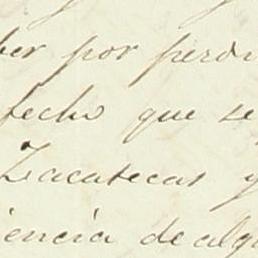 ber por perdi
fecho que se
Zacatecas y
iencia de algu